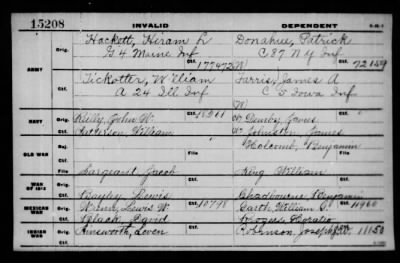 15208 INVALID DEPENDENT
Hackett, Hiram L Donahue, Patrick
Orig. G 4 Maine Inf C 87 N Y Inf
ARMY Ctf. 177472 Ctf. 72159
Tickotter, William Farris, James A
Orig. A 24 Ill Inf C 5 Iowa Inf
Ctf.
NAVY Orig. Reilly, John W. 18961 James
Ctf. William Johnston, James
OLD WAR Holcomb, Benjamin
File File
Sargeant, Jacob King William
WAR OF 1812 Orig. Bayley, Lewis Chadbourne, Benjamin
Ctf.
MEXICAN WAR Orig. Lewis W. 10798 Garth, William 11960
Ctf. Black, David Horatio
INDIAN WAR Orig. Ainsworth, Loven Robinson, Joseph 11150
Ctf. Ctf.